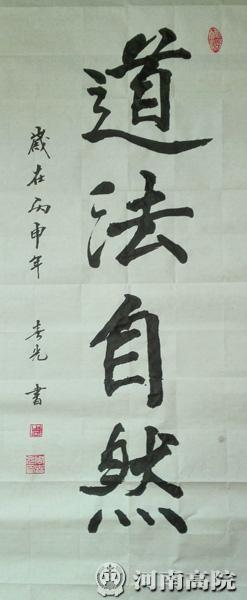 道法自然
歲在丙申年
春光 書
河南高院